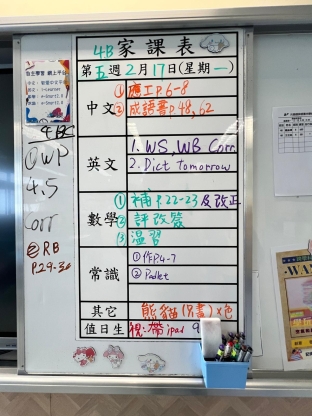 4B 家課表
第五週2月17日(星期一)
中文
①應工P.6-8
②成語書P.48,62
英文
1. WS, WB Corr.
2. Dict Tomorrow
數學
①補P.22-23及改正
②評改簽
③温習
常識
①作P.4-7
②Padlet
其它
熊貓
值日生
視:帶ipad
自主學習 網上平台
4B
①WP
4.5
corr
②RB